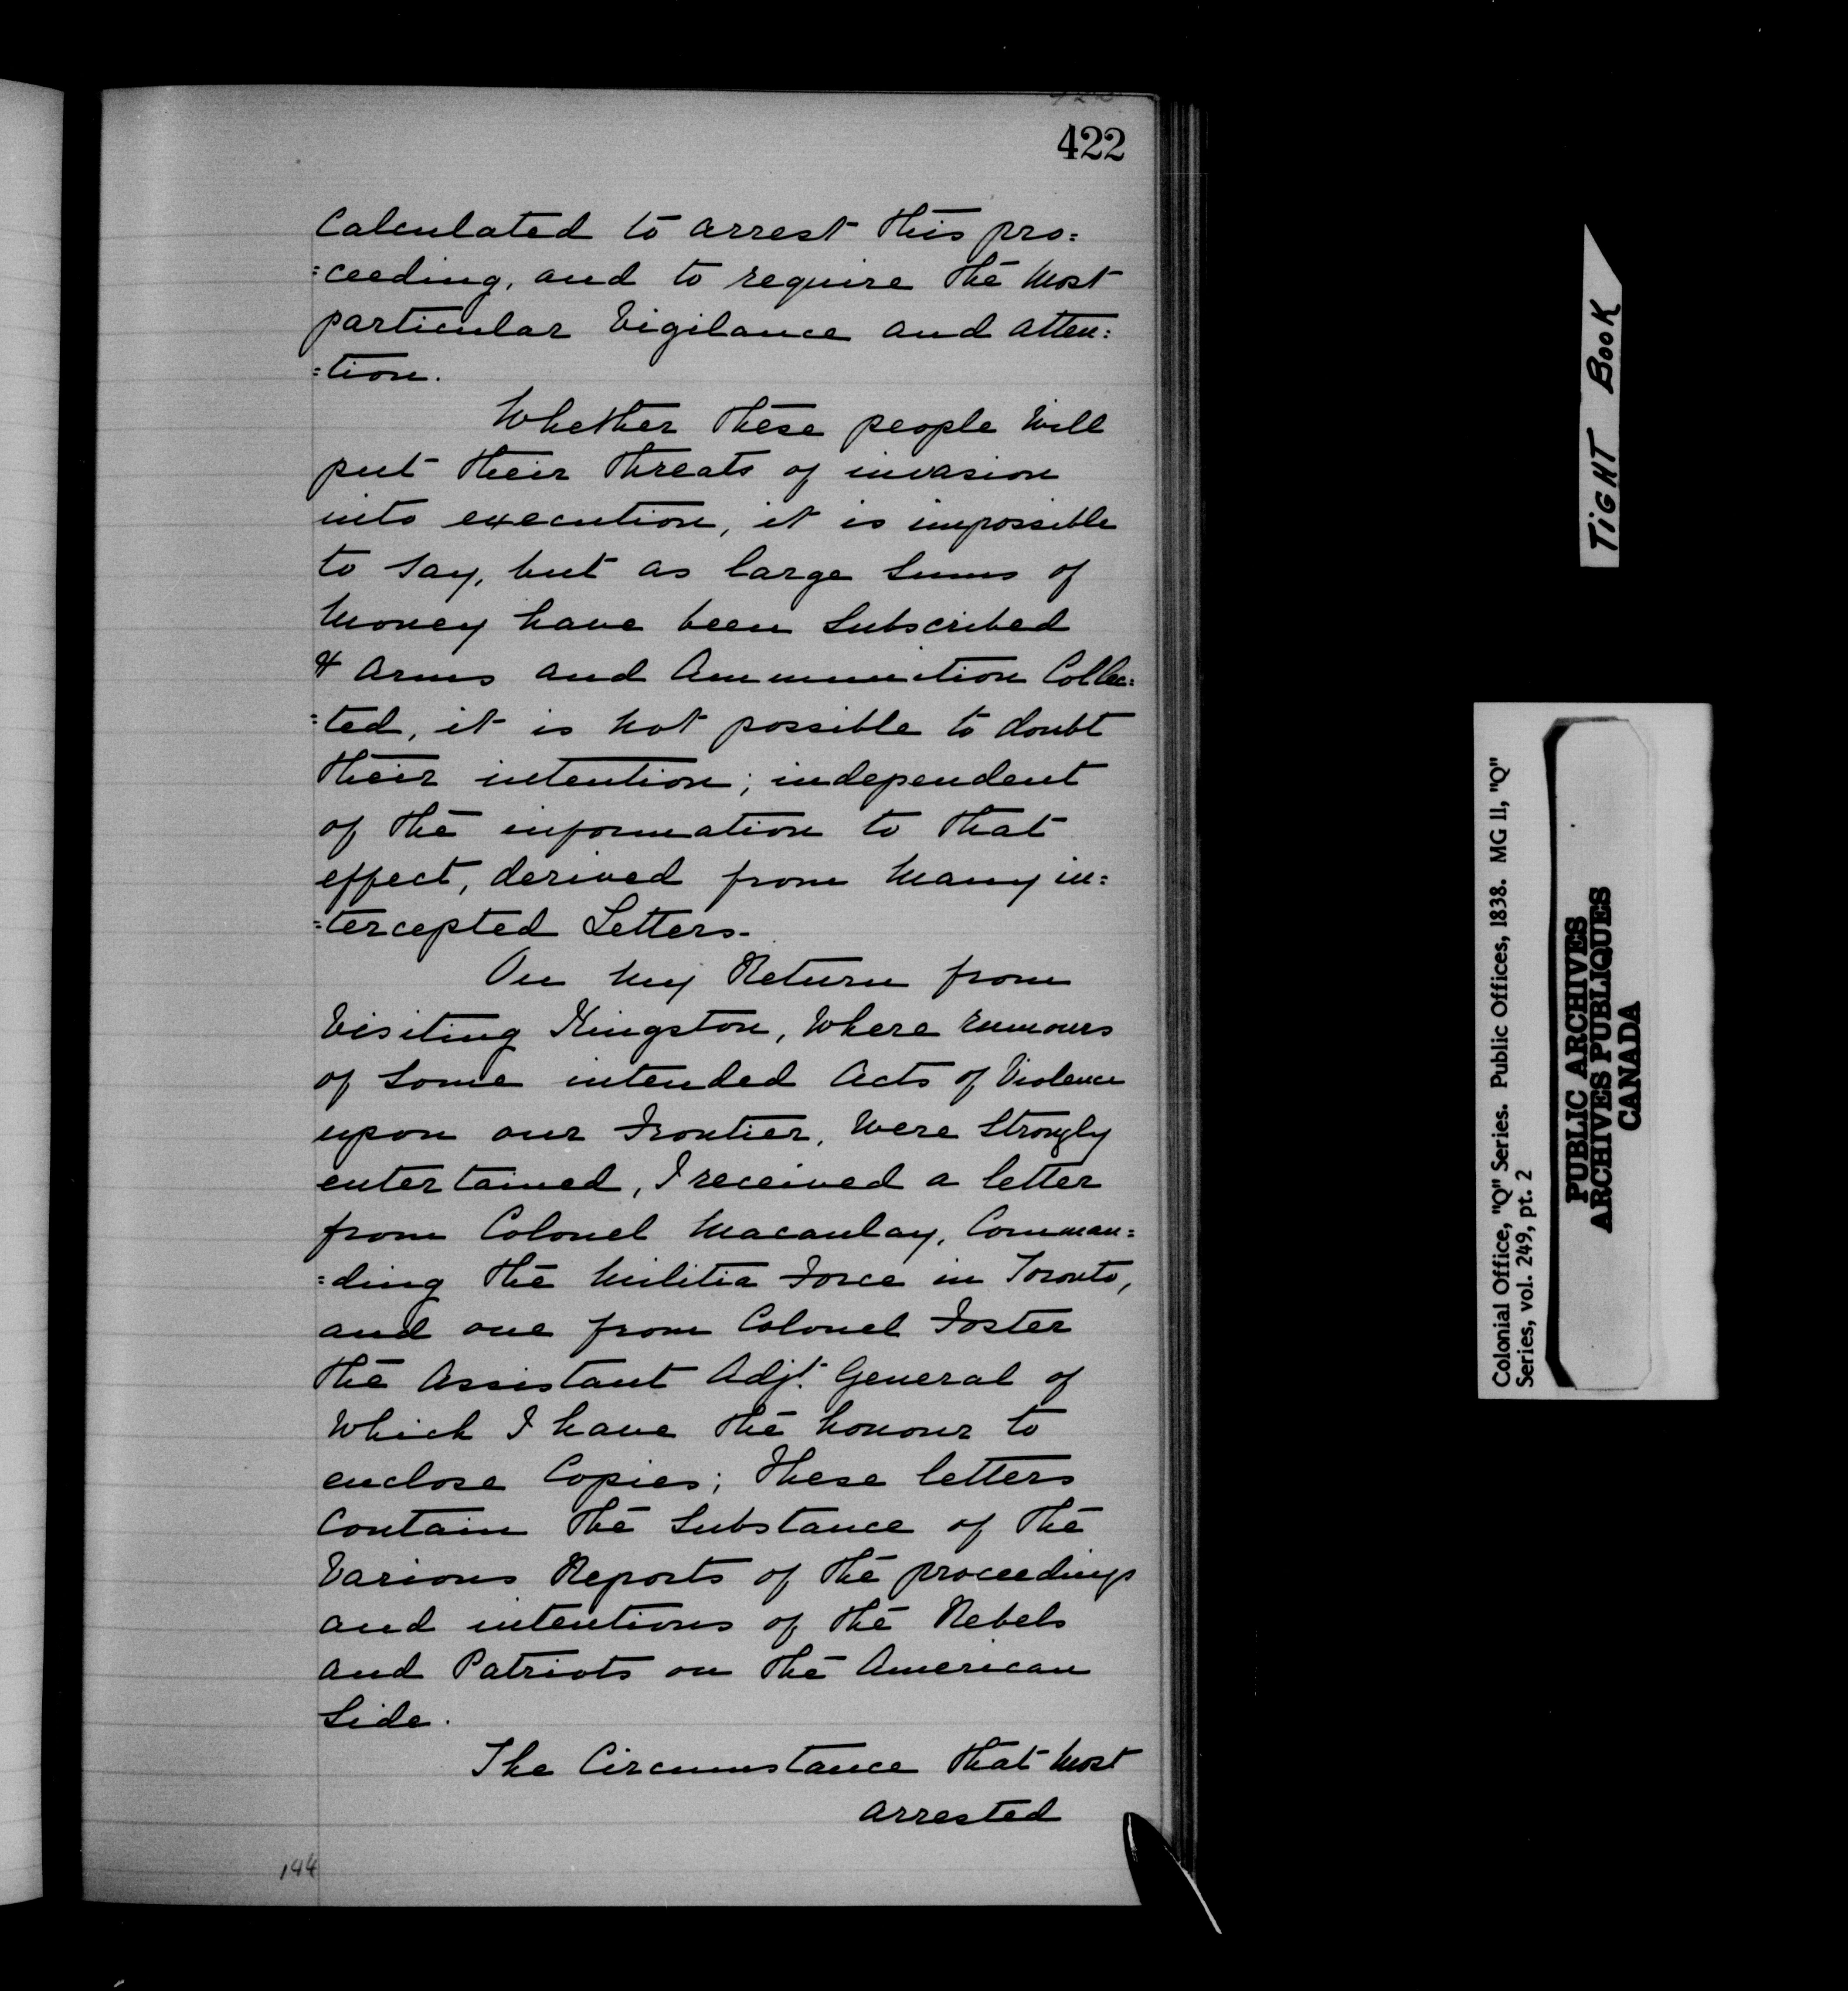 422
Calculated to arrest this pro=
=ceeding, and to require the Most
particular Vigilance and atten=
=tion.
Whether these people Will
put their threats of invasion
into execution, it is impossible
to Say, but as large Sums of
Money have been Subscribed
& Arms and Ammunition Collec=
=ted, it is Not possible to doubt
their intention; independent
of the information to that
effect, derived from Many in=
=tercepted Letters.
On My Return from
Visiting Kingston, Where rumours
of Some intended Acts of Violence
upon our Frontier, Were Strongly
entertained, I received a letter
from Colonel Macaulay, Comman=
=ding the Militia Force in Toronto,
and one from Colonel Foster
the Assistant Adjt. General of
Which I have the honour to
enclose Copies; These letters
Contain the Substance of the
Various Reports of the proceedings
and intentions of the Rebels
and Patriots on the American
Side.
The Circumstance that Most
arrested
144
TiGHT BOOK
Colonial Office, "Q" Series. Public Offices, 1838. MG 11, "Q"
Series, vol. 249, pt. 2
PUBLIC ARCHIVES
ARCHIVES PUBLIQUES
CANADA